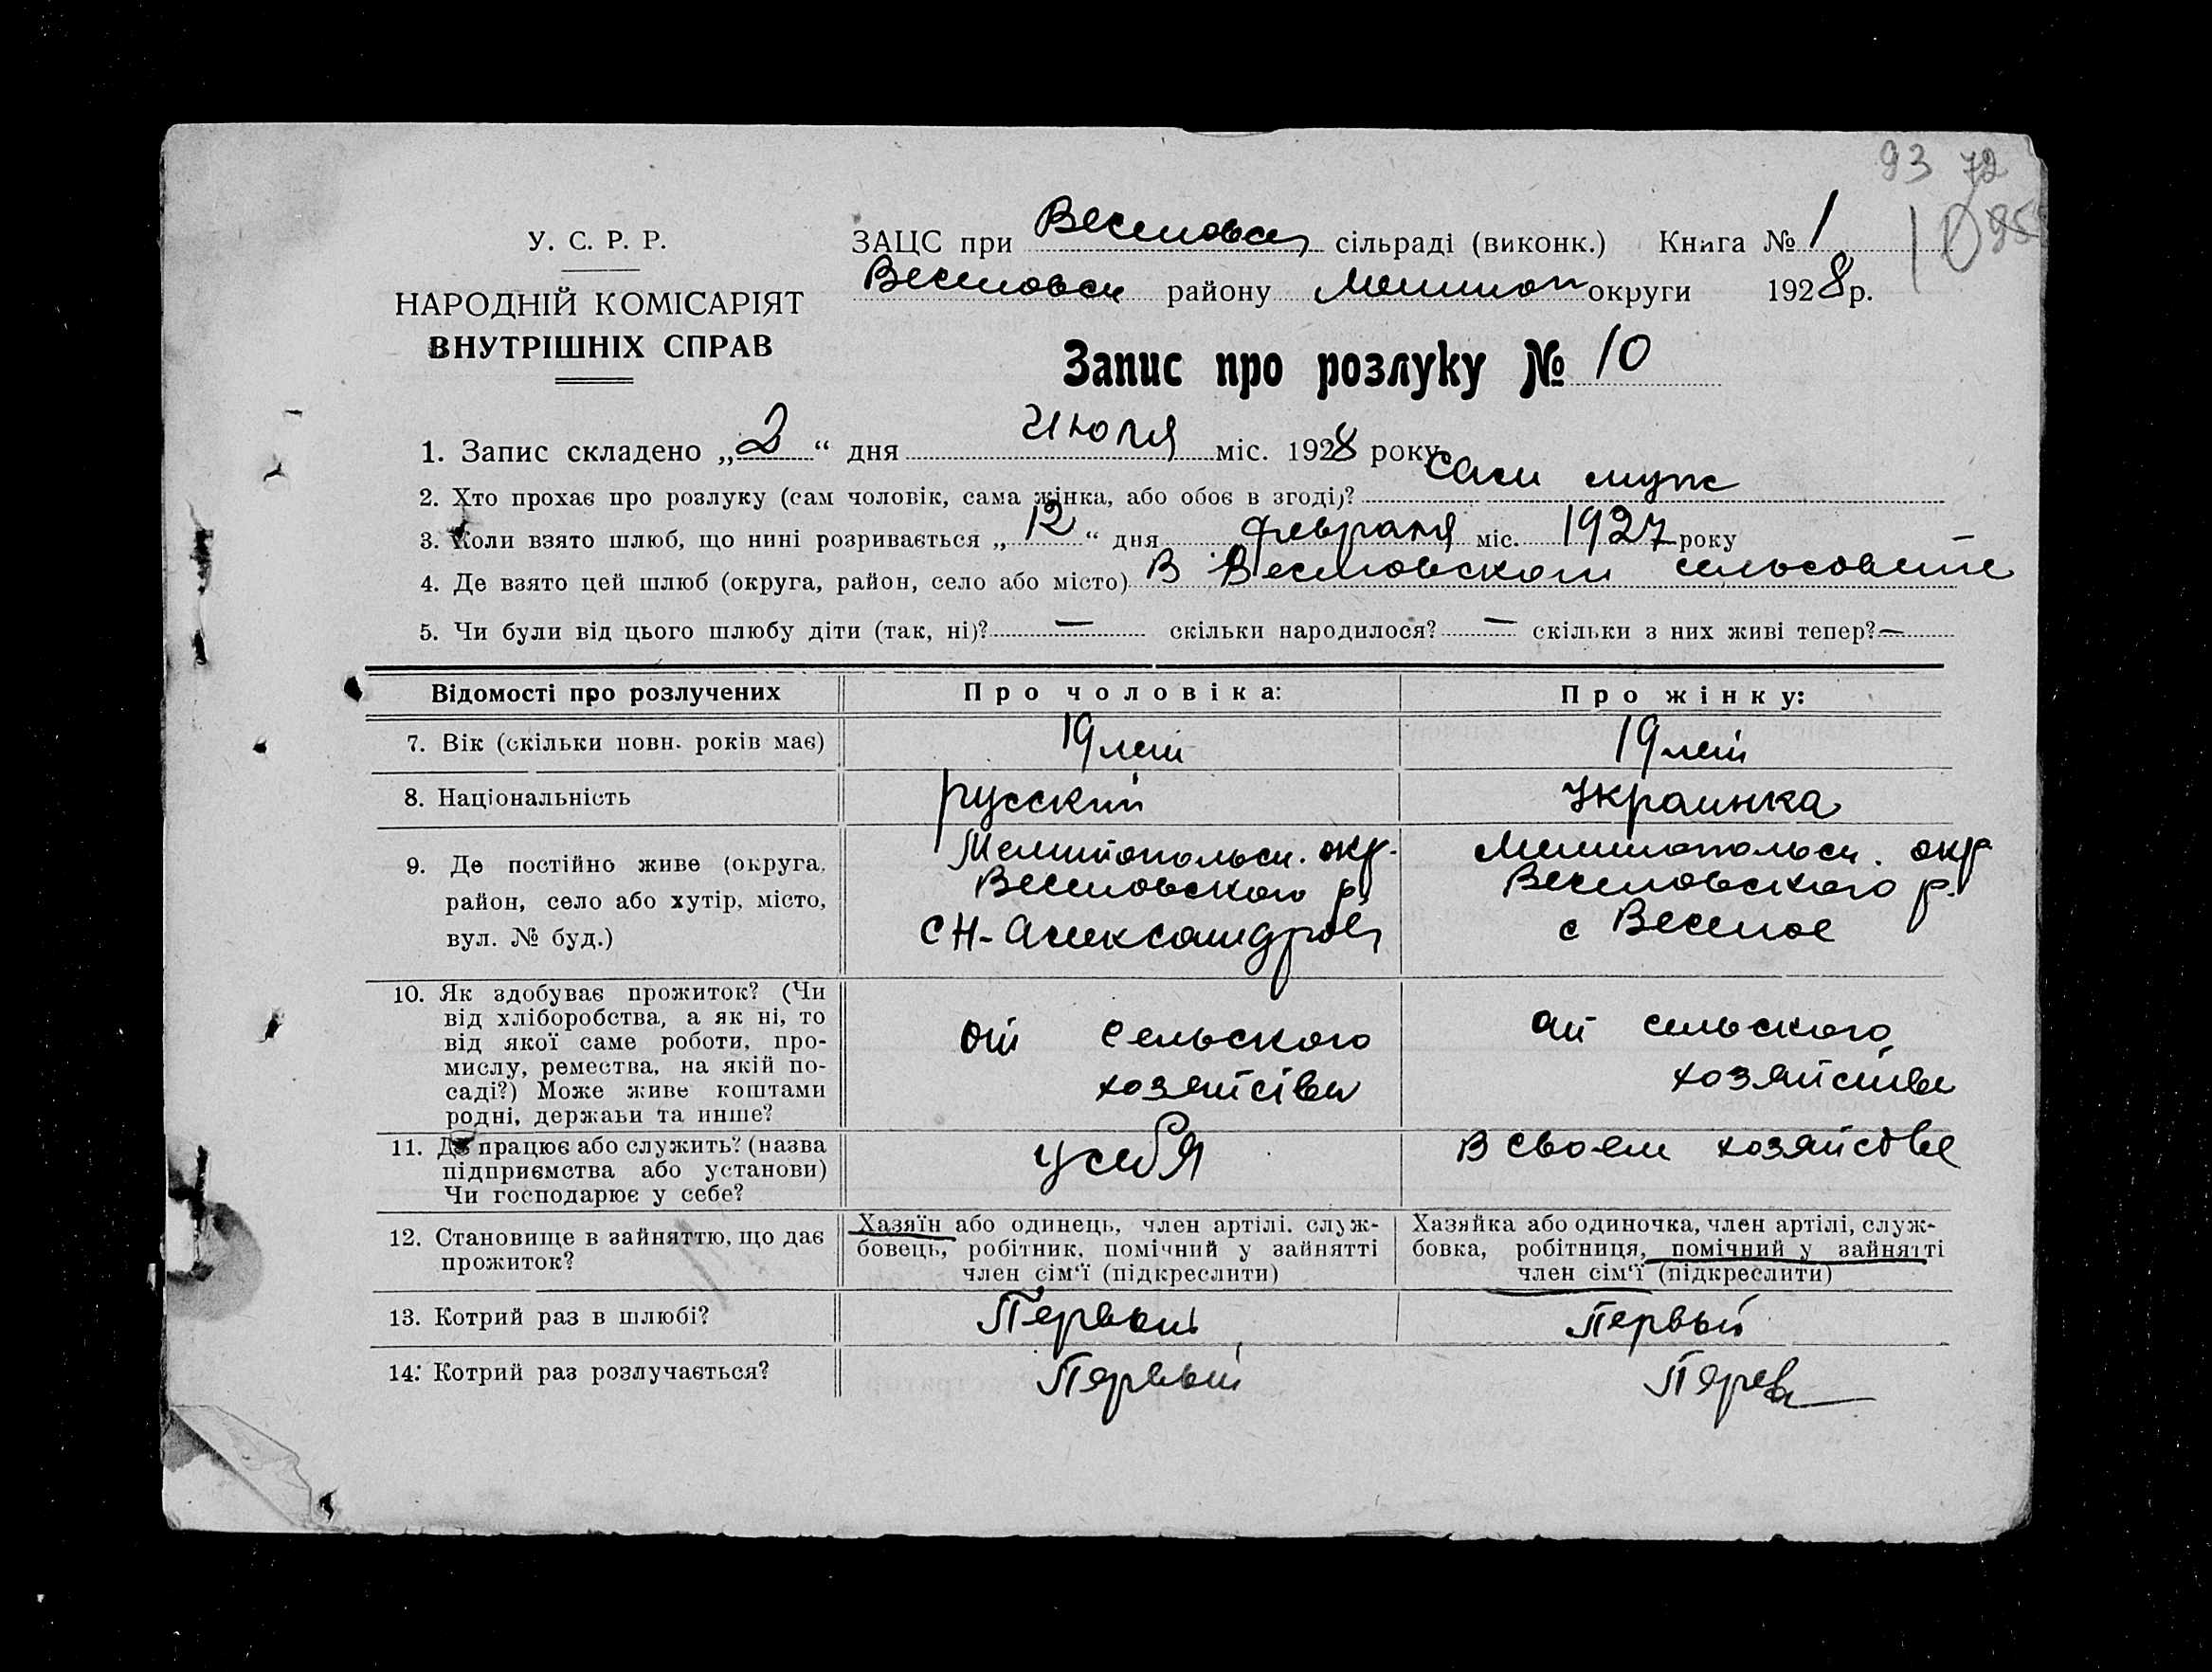 93 72
У. С. Р. Р.
НАРОДНІЙ КОМІСАРІЯТ
ВНУТРІШНІХ СПРАВ
ЗАЦС при Веселовск сільраді (виконк.) Книга № 1
Веселовск району Мелитоп округи 1928 р.
Запис про розлуку № 10
1. Запис складено „2“ дня Июля міс. 1928 року
2. Хто прохає про розлуку (сам чоловік, сама жінка, або обоє в згоді)? Сам муж
3. Коли взято шлюб, що нині розривається „12“ дня февраля міс. 1927 року
4. Де взято цей шлюб (округа, район, село або місто) В Веселовском сельсовете
5. Чи були від цього шлюбу діти (так, ні)? — скільки народилося? — скільки з них живі тепер? —
Відомості про розлучених Про чоловіка: Про жінку:
7. Вік (скільки повн. років має) 19 лет 19 лет
8. Національність русский Украинка
9. Де постійно живе (округа, район, село або хутір, місто, вул. № буд.)
Мелитопольск. окр.
Веселовского р.
с Н-Александров
Мелитопольск. окр
Веселовского р.
с Веселое
10. Як здобуває прожиток? (Чи
від хліборобства, а як ні, то
від якої саме роботи, про-
мислу, ремества, на якій по-
саді?) Може живе коштами
родні, держави та инше?
от сельского
хозяйства
от сельского
хозяйства
11. Де працює або служить? (назва
підприємства або установи)
Чи господарює у себе?
у себя
В своем хозяйстве
12. Становище в зайняттю, що дає
прожиток?
Хазяїн або одинець, член артілі. служ-
бовець, робітник, помічний у зайнятті
член сім‘ї (підкреслити)
Хазяйка або одиночка, член артілі, служ-
бовка, робітниця, помічний у зайнятті
член сім‘ї (підкреслити)
13. Котрий раз в шлюбі? Первый Первый
14. Котрий раз розлучається? Первый